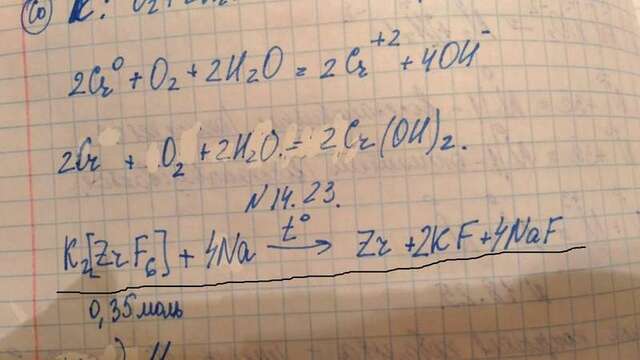 2Cr⁰ + O₂ + 2H₂O = 2Cr⁺² + 4OH⁻
2Cr + O₂ + 2H₂O = 2Cr(OH)₂.
N 14.23.
K₂[ZrF₆] + 4Na t° → Zr + 2KF + 4NaF
0,35 моль